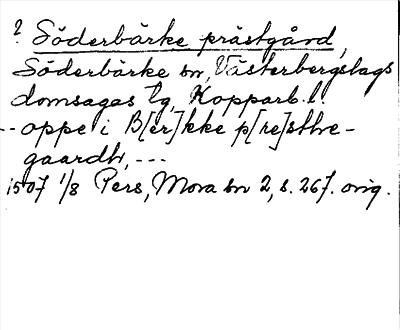 ? Söderbärke prästgård,
Söderbärke sn, Västerbergslags
domsagas tg, Kopparb. l.
-- oppe i B[er]kke p[re]sthe-
gaardh, ---
1507 1/8 Pers, Mora sn 2, s. 267. orig.